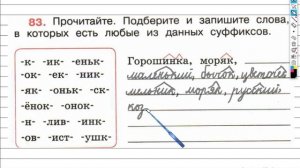 83. Прочитайте. Подберите и запишите слова,
в которых есть любые из данных суффиксов.
-к- -ик- -еньк-
-ок- -ек- -ник-
-як- -оньк- -ск-
-ёнок- -онок-
-н- -лив- -инк-
-ов- -ист- -ушк-
Горошинка, моряк,
маленький, бычок, цветочек
мельник, моряк, русский
коз